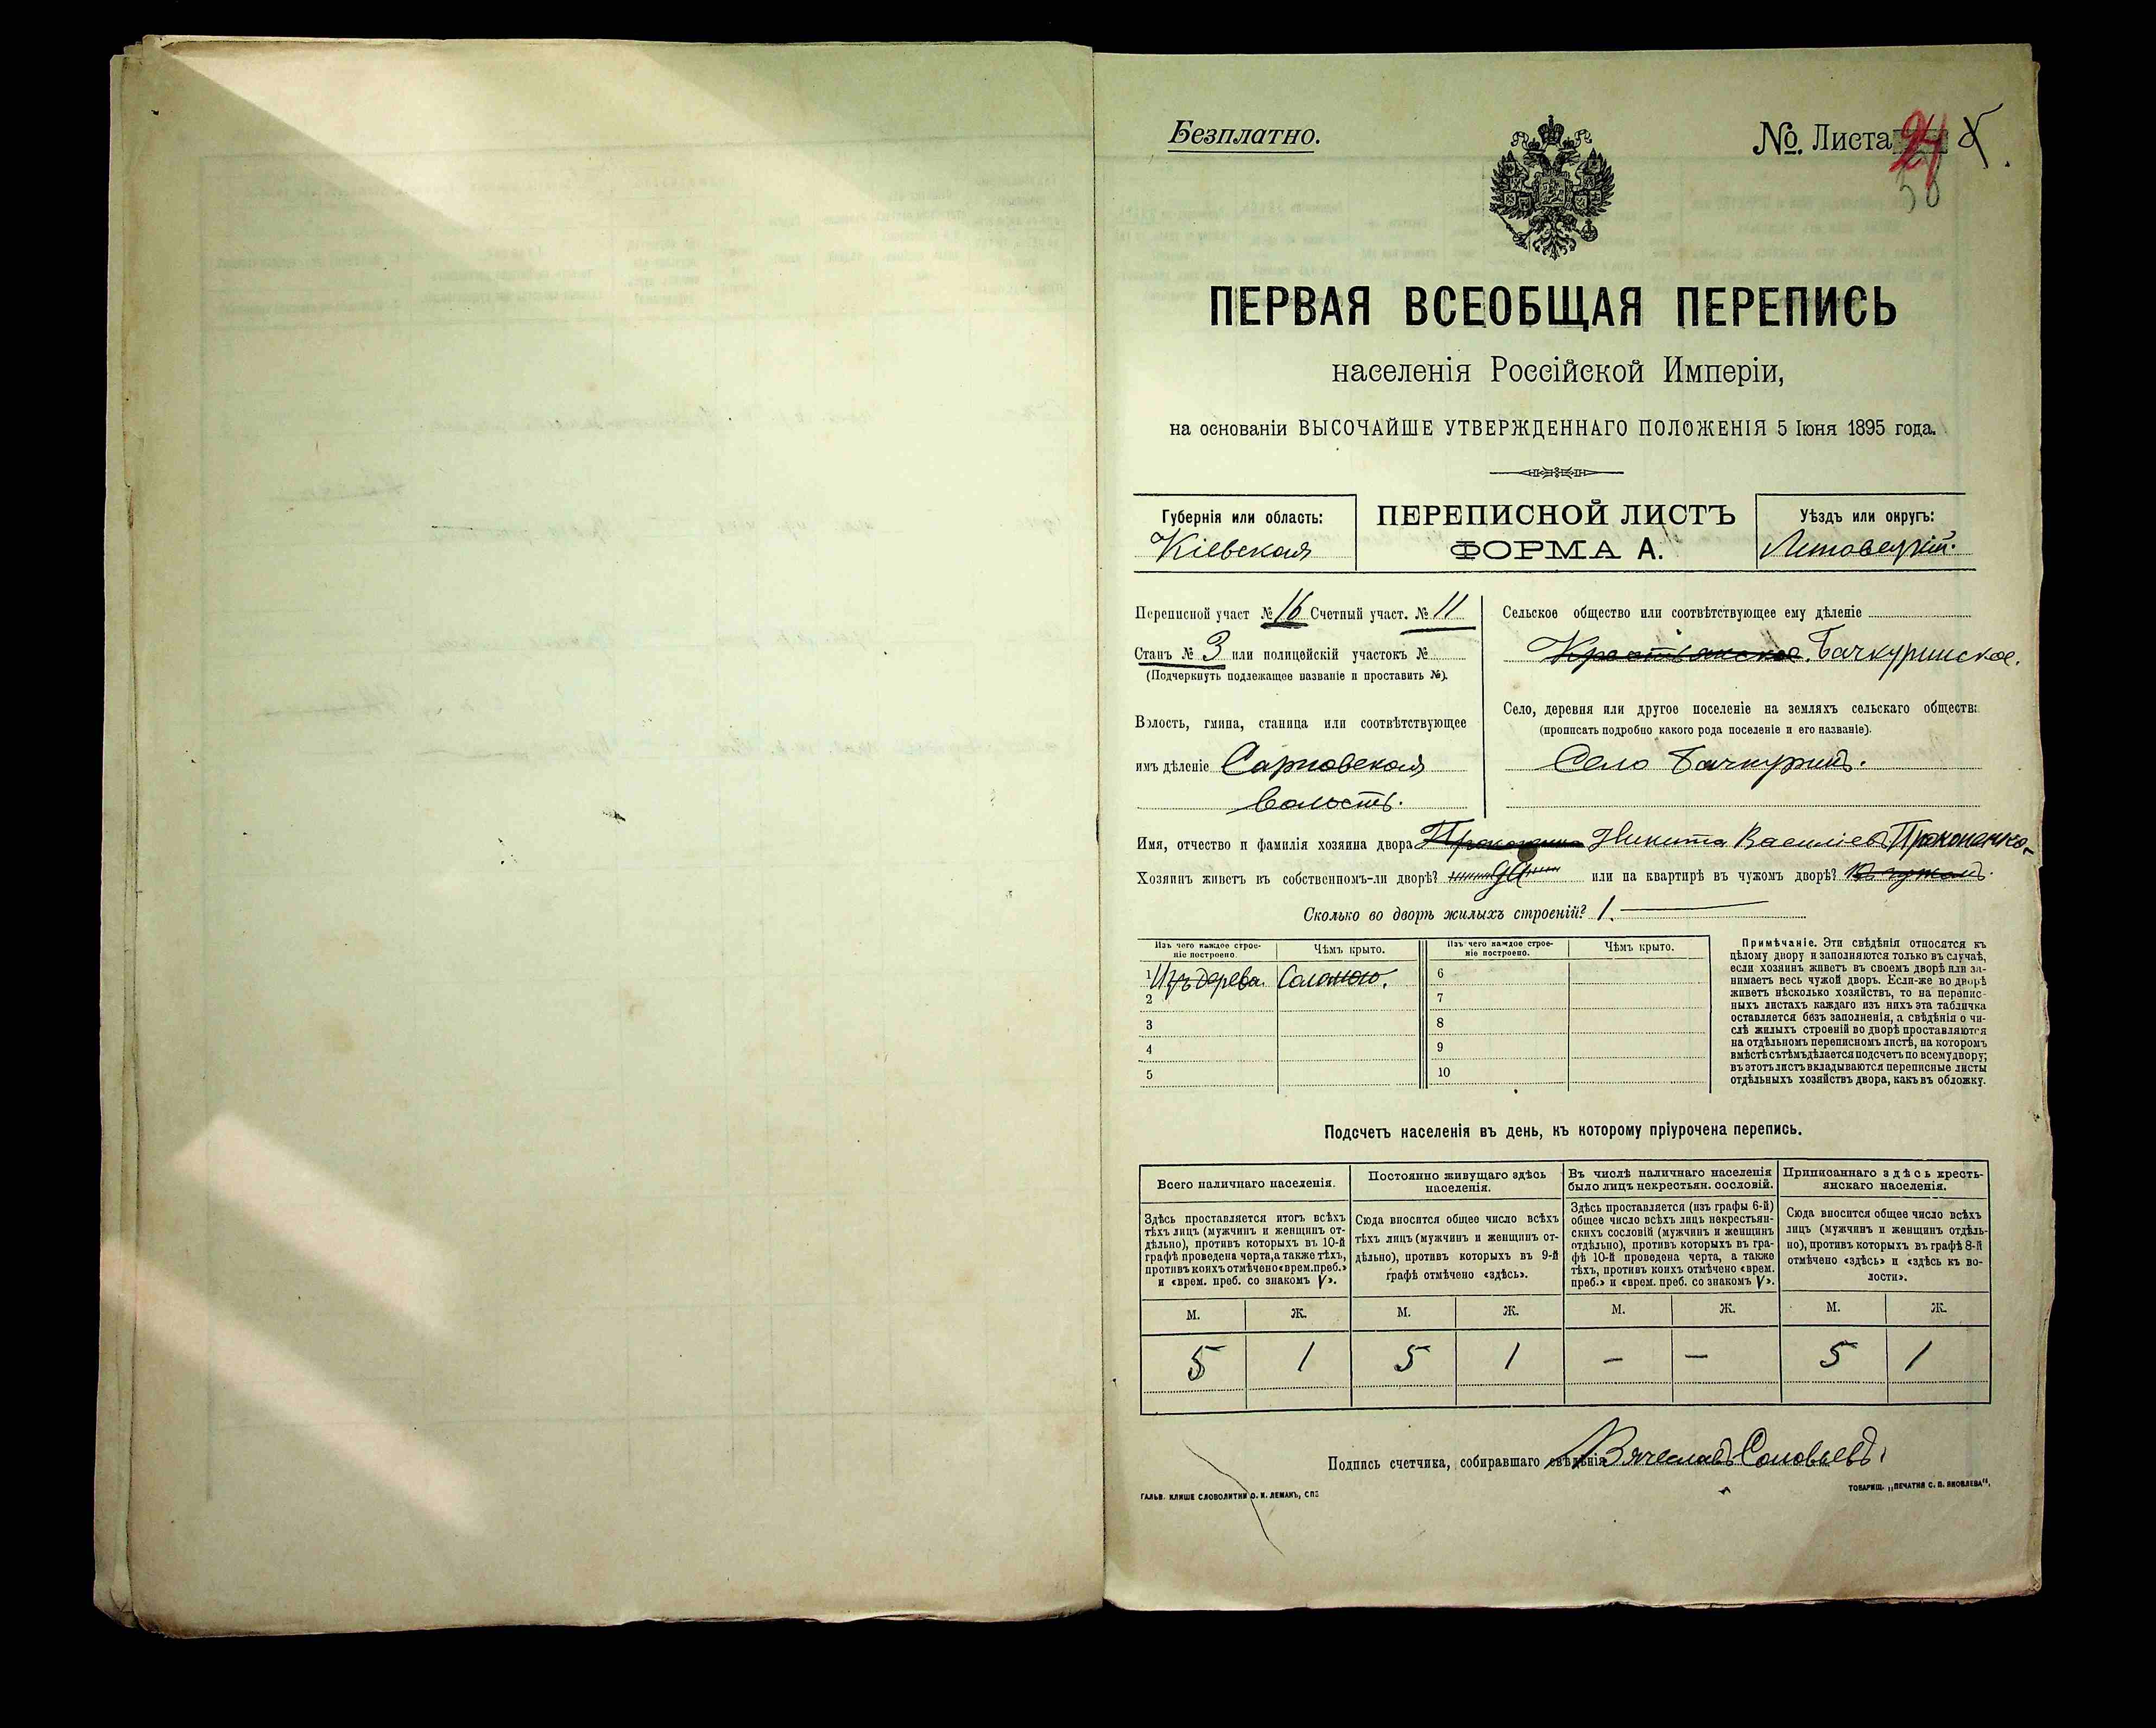 Безплатно.
№ Листа 24
58
ПЕРВАЯ ВСЕОБЩАЯ ПЕРЕПИСЬ
населенія Россійской Имперіи,
на основаніи ВЫСОЧАЙШЕ УТВЕРЖДЕННАГО ПОЛОЖЕНІЯ 5 Іюня 1895 года.
Губернія или область:
Кіевская
ПЕРЕПИСНОЙ ЛИСТЪ
ФОРМА А.
Уѣздъ или округъ:
Липовецкій.
Переписной участ № 16 Счетный участ. № 11
Станъ № 3 или полицейскій участокъ №
(Подчеркнуть подлежащее названіе и проставить №).
Волость, гмина, станица или соотвѣтствующее
имъ дѣленіе
волость.
Сельское общество или соотвѣтствующее ему дѣленіе
Бачкуринское.
Село, деревня или другое поселеніе на земляхъ сельскаго обществ:
(прописать подробно какого рода поселеніе и его названіе).
Село Бачкуринъ.
Имя, отчество и фамилія хозяина двора Никита Василіевъ Прокопенко.
Хозяинъ живетъ въ собственномъ-ли дворѣ? да или на квартирѣ въ чужомъ дворѣ? Въ чужомъ.
Сколько во дворѣ жилыхъ строеній? 1.
Изъ чего каждое строе-
ніе построено.
Чѣмъ крыто.
Изъ чего каждое строе-
ніе построено.
Чѣмъ крыто.
1 Изъ дерева. Соломою.
2
3
4
5
6
7
8
9
10
Примѣчаніе. Эти свѣдѣнія относятся къ
цѣлому двору и заполняются только въ случаѣ,
если хозяинъ живетъ въ своемъ дворѣ или за-
нимаетъ весь чужой дворъ. Если-же во дворѣ
живетъ нѣсколько хозяйствъ, то на перепис-
ныхъ листахъ каждаго изъ нихъ эта табличка
оставляется безъ заполненія, а свѣдѣнія о чи-
слѣ жилыхъ строеній во дворѣ проставляются
на отдѣльномъ переписномъ листѣ, на которомъ
вмѣстѣ съ тѣмъ дѣлается подсчетъ по всему двору;
въ этотъ листъ вкладываются переписные листы
отдѣльныхъ хозяйствъ двора, какъ въ обложку.
Подсчетъ населенія въ день, къ которому пріурочена перепись.
Всего наличнаго населенія.
Здѣсь проставляется итогъ всѣхъ
тѣхъ лицъ (мужчинъ и женщинъ от-
дѣльно), противъ которыхъ въ 10-й
графѣ проведена черта, а также тѣхъ,
противъ коихъ отмѣчено «врем. преб.»
и «врем. преб. со знакомъ V».
Постоянно живущаго здѣсь
населенія.
Сюда вносится общее число всѣхъ
тѣхъ лицъ (мужчинъ и женщинъ от-
дѣльно), противъ которыхъ въ 9-й
графѣ отмѣчено «здѣсь».
Въ числѣ наличнаго населенія
было лицъ некрестьян. сословій.
Здѣсь проставляется (изъ графы 6-й)
общее число всѣхъ лицъ некрестьян-
скихъ сословій (мужчинъ и женщинъ
отдѣльно), противъ которыхъ въ гра-
фѣ 10-й проведена черта, а также
тѣхъ, противъ коихъ отмѣчено «врем.
преб.» и «врем. преб. со знакомъ V».
Приписаннаго здѣсь кресть-
янскаго населенія.
Сюда вносится общее число всѣхъ
лицъ (мужчинъ и женщинъ отдѣль-
но), противъ которыхъ въ графѣ 8-й
отмѣчено «здѣсь» и «здѣсь къ во-
лости».
М. Ж. М. Ж. М. Ж. М. Ж.
5 1 5 1 – – 5 1
Подпись счетчика, собиравшаго свѣдѣнія Вячеславъ Соловьевъ.
ГАЛЬВ. КЛИШЕ СЛОВОЛИТНИ О. И. ЛЕМАНЪ, СПБ
ТОВАРИЩ. „ПЕЧАТНЯ С. П. ЯКОВЛЕВА“.